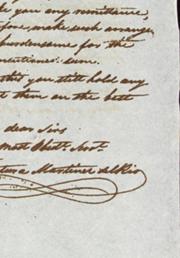 you any remittance,
make such arrange
for the
mentioned sum.
this you still hold any
them on the best
dear Sirs
Most Obdt. Servt.
Martinez del Rio